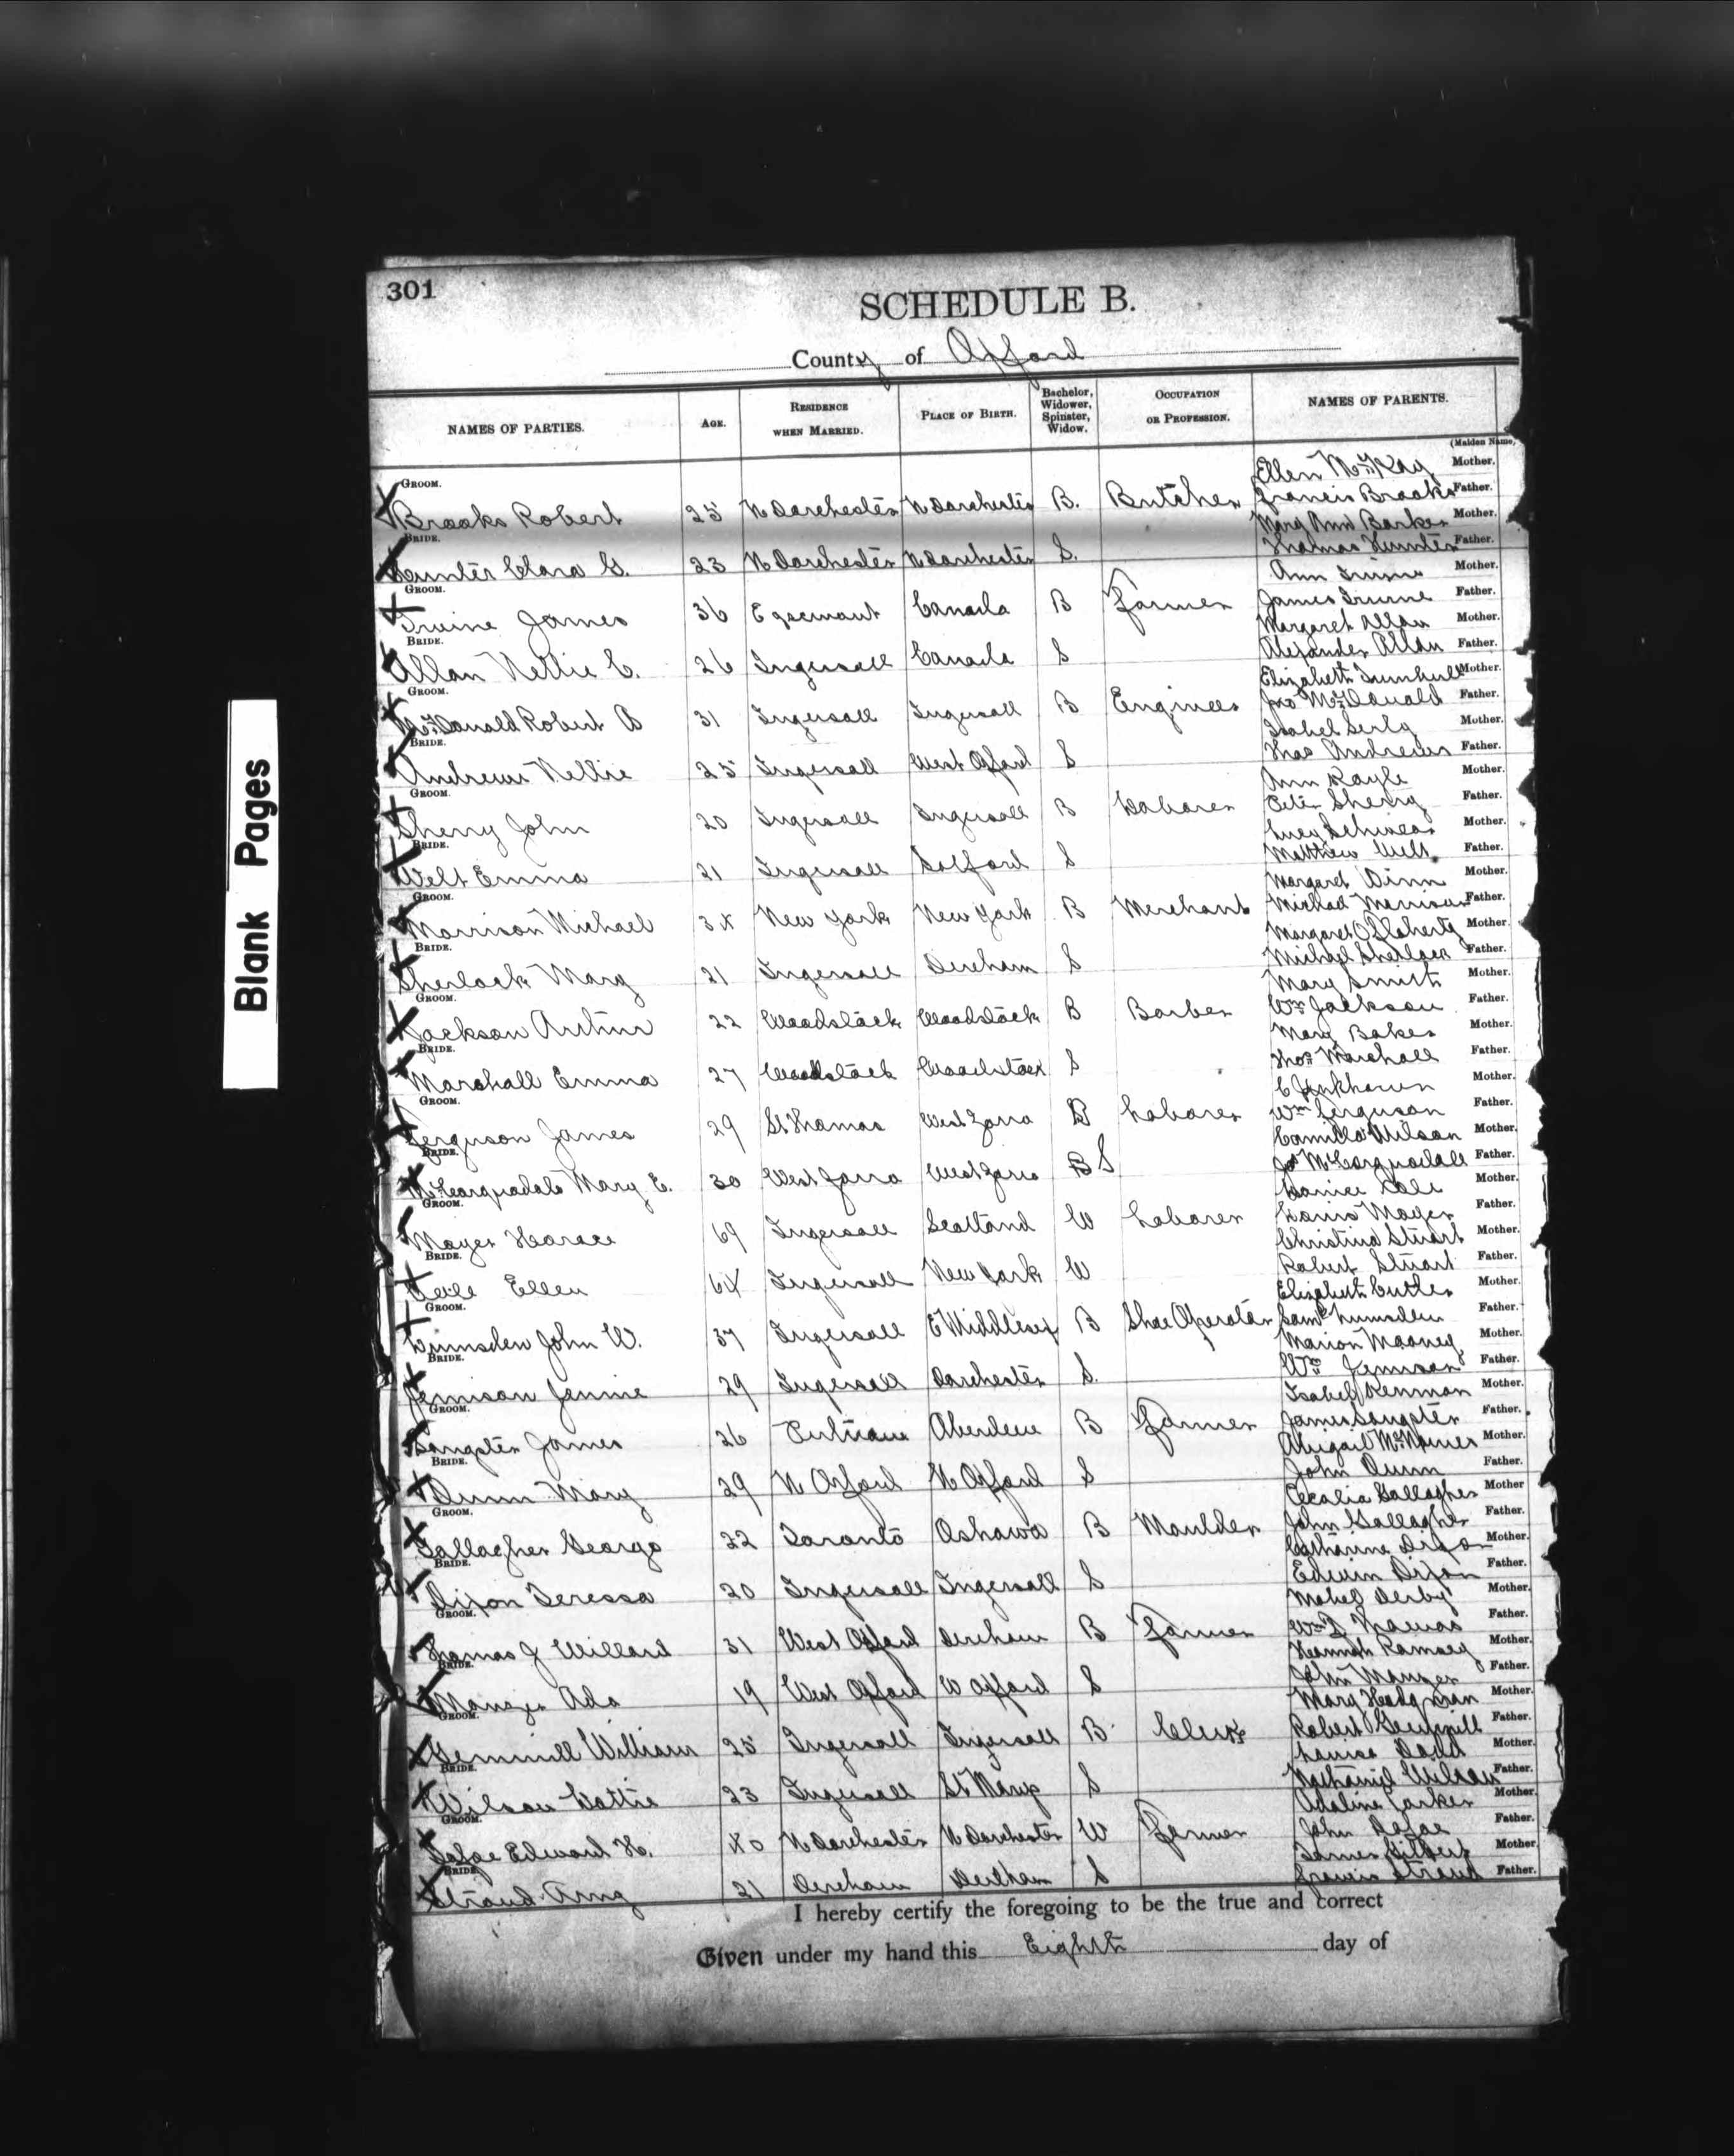 Blank Pages
301
SCHEDULE B.
County of Oxford
NAMES OF PARTIES. AGE. RESIDENCE WHEN MARRIED. PLACE OF BIRTH. Bachelor, Widower, Spinster, Widow. OCCUPATION OR PROFESSION. NAMES OF PARENTS.
(Maiden Name,
Ellen McKay Mother.
GROOM. Brooks Robert 25 N Dorchester N Dorchester B. Butcher Francis Brooks Father.
Mary Ann Barker Mother.
BRIDE. Hunter Clara G. 23 N Dorchester N Dorchester S. Thomas Hunter Father.
Ann Irvine Mother.
GROOM. Irvine James 36 Egremont Canada B Farmer James Irvine Father.
Margaret Allan Mother.
BRIDE. Allan Nellie C. 26 Ingersoll Canada S Alexander Allan Father.
Elizabeth Turnbull Mother.
GROOM. McDonald Robert B 31 Ingersoll Ingersoll B Engineer Jno McDonald Father.
Isabel Mother.
BRIDE. Andrews Nellie 25 Ingersoll West Oxford S Thos Andrews Father.
Ann Kayle Mother.
GROOM. Sherry John 20 Ingersoll Ingersoll B Laborer Peter Sherry Father.
Lucy Mother.
BRIDE. Welt Emma 21 Ingersoll Salford S Matthew Welt Father.
Margaret Dinn Mother.
GROOM. Morrison Michael 34 New York New York B Merchant Michael Morrison Father.
Margaret O'Flaherty Mother.
BRIDE. Sherlock Mary 21 Ingersoll Dereham S Michael Sherlock Father.
Mary Smith Mother.
GROOM. Jackson Arthur 22 Woodstock Woodstock B Barber Wm Jackson Father.
Mary Baker Mother.
BRIDE. Marshall Emma 27 Woodstock Woodstock S Thos Marshall Father.
C Mother.
GROOM. Ferguson James 29 St Thomas West Zorra B Laborer Wm Ferguson Father.
Camilla Wilson Mother.
BRIDE. McCorquodale Mary E. 30 West Zorra West Zorra S Jas McCorquodale Father.
Cole Mother.
GROOM. Mayer Horace 69 Ingersoll Scotland W Laborer Louis Mayer Father.
Christina Stuart Mother.
BRIDE. Ellen 64 Ingersoll New York W Robert Stuart Father.
Elizabeth Cutler Mother.
GROOM. Lumsden John W. 37 Ingersoll E Middlesex B Shoe Operator Saml Lumsden Father.
Marion Mooney Mother.
BRIDE. Jemison Jennie 29 Ingersoll Dorchester S. Wm Jemison Father.
Isabel Mother.
GROOM. Sangster James 26 Aberdeen B Farmer James Sangster Father.
Abigail Mother.
BRIDE. Dunn Mary 29 N Oxford N Oxford S John Dunn Father.
Cecalia Gallagher Mother
GROOM. Gallagher George 22 Toronto Oshawa B Moulder John Gallagher Father.
Catharine Dixon Mother.
BRIDE. Dixon Teressa 20 Ingersoll Ingersoll S Edwin Dixon Father.
Mabel Derby Mother.
GROOM. Thomas J Willard 31 West Oxford Dereham B Farmer Thomas Father.
Hannah Ramsey Mother.
BRIDE. Ada 19 West Oxford W Oxford S John Father.
Mary Mother.
GROOM. Gemmill William 25 Ingersoll Ingersoll B Clerk Robert Gemmill Father.
Louisa Dodd Mother.
BRIDE. Wilson Lottie 23 Ingersoll St Marys S Nathaniel Wilson Father.
Adaline Parker Mother.
GROOM. Edward H. 40 N Dorchester N Dorchester W Farmer John Father.
Gilbert Mother.
BRIDE. Stroud Amy 21 Dereham Dereham S Francis Stroud Father.
I hereby certify the foregoing to be the true and correct
Given under my hand this Eighth day of